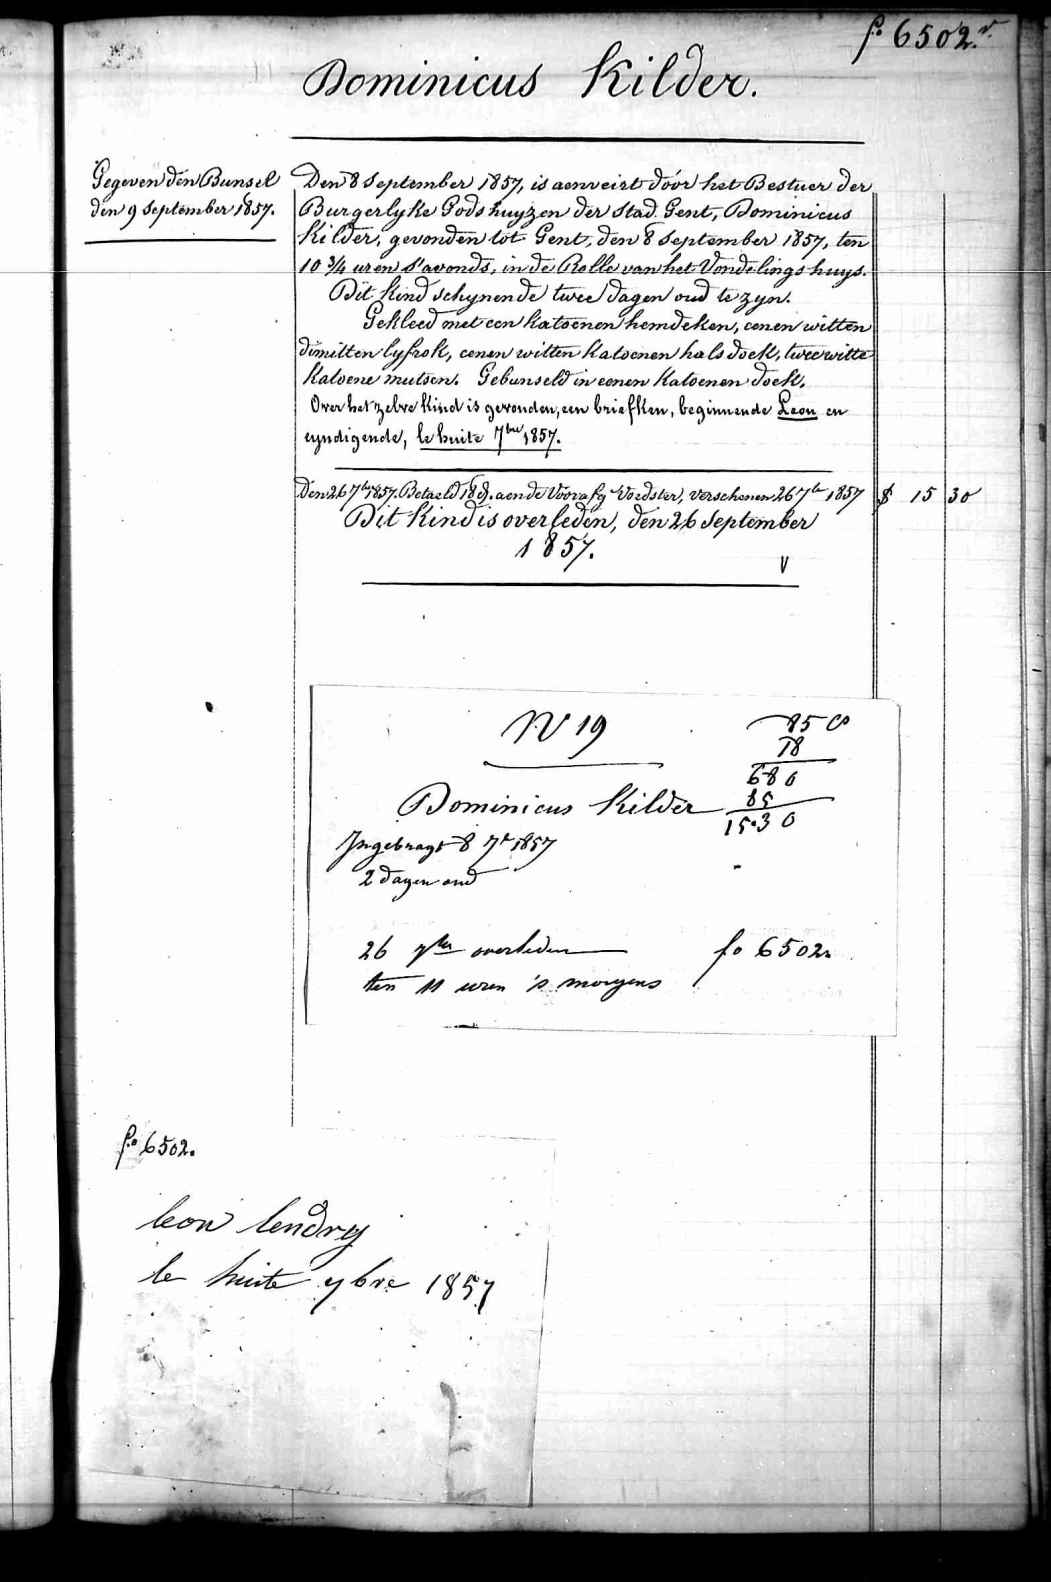 fo 6502.r.
Dominicus Kilder.
Gegeven den Bunsel
den 9 September 1857.
Den 8 September 1857, is aenveirt door het Bestuer der
Burgerlyke Godshuyzen der Stad Gent, Dominicus
Kilder, gevonden tot Gent, den 8 September 1857, ten
10 3/4 uren s'avonds, in de Rolle van het Vondelingshuys.
Dit Kind schynende twee dagen oud te zyn.
Gekleed met een katoenen hemdeken, eenen witten
dimitten lyfrok, eenen witten katoenen halsdoek, twee witte
katoene mutsen. Gebunseld in eenen katoenen doek.
Over het zelve kind is gevonden, een briefken, beginnende Leon en
eyndigende, le huite 7bre 1857.
Den 26 7ber 1857. Betaeld 18 d. aen de Voorafg Voedster, verschenen 26 7br 1857 $ 15 30
Dit Kind is overleden, den 26 September
1857.
V
N 19
85 C
18
680
85
15.30
Dominicus Kilder
Ingebragt 8 7r 1857
2 dagen oud
26 7ber overleden
fo 6502.
ten 11 uren 's morgens
fo 6502.
leon lendry
le huite 7bre 1857